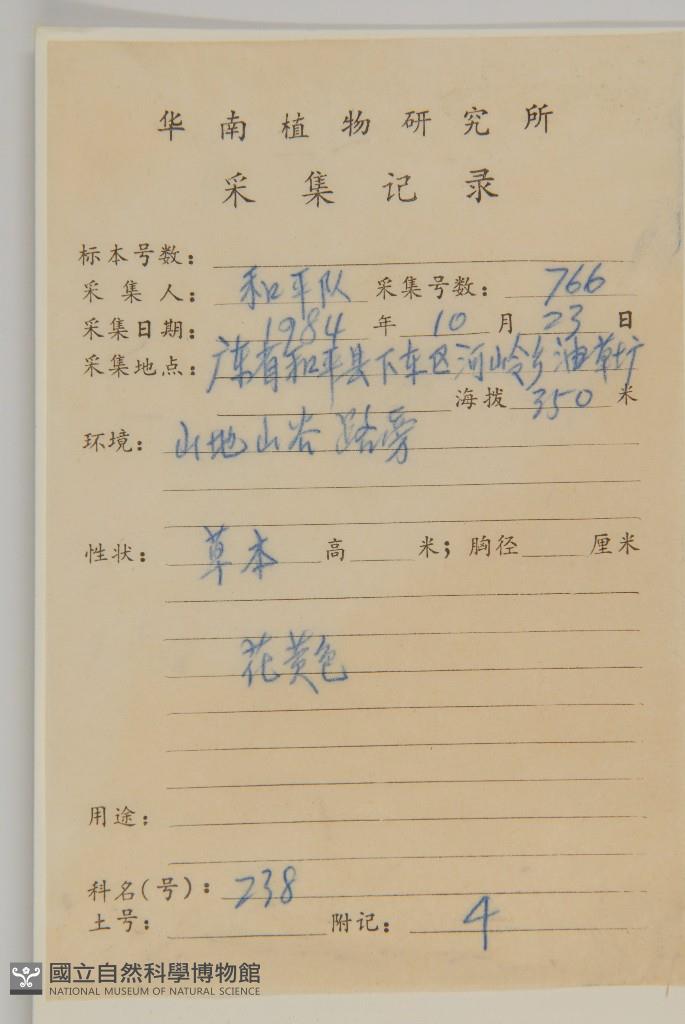 华南植物研究所
采集记录
标本号数：
采集人：和平队 采集号数：766
采集日期：1984年10月23日
采集地点：广东省和平县下车区河岭乡油草圹
海拨350米
环境：山地山谷路旁
性状：草本 高 米；胸径 厘米
花黄色
用途：
科名(号)：238
土号： 附记：4
國立自然科學博物館
NATIONAL MUSEUM OF NATURAL SCIENCE